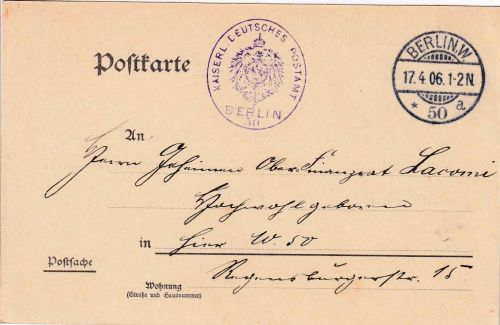 Postkarte
KAISERL. DEUTSCHES POSTAMT
BERLIN
50
BERLIN.W.
17.4.06.1-2N.
* 50 a
An
Herrn Geheimen Ober-Finanzrat Lacomi
Hochwohlgeboren
in Hier W. 50
Postsache
Regensburgerstr. 15
Wohnung
(Straße und Hausnummer)